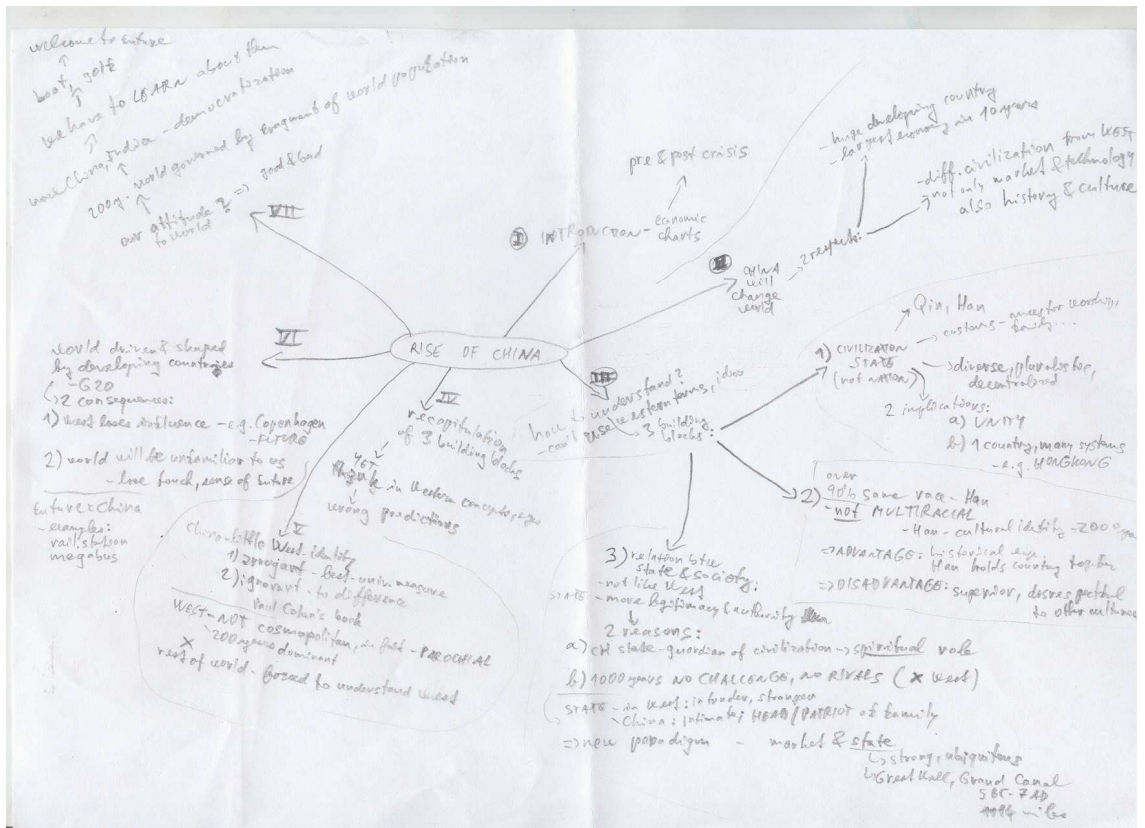 RISE OF CHINA
I INTRODUCTION - economic
charts
pre & post crisis
II
CHINA
will
change
world
2 respects:
- huge developing country
- largest economy in 10 years
- diff. civilization from WEST
- not only market & technology
also history & culture
III
how understand?
- can't use western terms, ideas
3 building
blocks:
1) CIVILIZATION
STATE
(not NATION)
Qin, Han
customs - ancestor worship,
family...
diverse, pluralistic,
decentralized
2 implications:
a) UNITY
b) 1 country, many systems
- e.g. HONGKONG
2) over
90% same race - Han
- not MULTIRACIAL
- Han - cultural identity - 2000 years
=> ADVANTAGE: historical
Han holds country together
=> DISADVANTAGE: superior, disrespectful
to other cultures
3) relation btw
state & society:
- not like West
STATE - more legitimacy & authority
2 reasons:
a) CH state - guardian of civilization -> spiritual role
b) 1000 years NO CHALLENGE, NO RIVALS (x West)
STATE - in West: intruder, stranger
China: intimate; HEAD/PATRIOT of family
=> new paradigm - market & state
strong, ubiquitous
Great Wall, Grand Canal
5BC - 7AD
miles
IV
recapitulation
of 3 building blocks
YET
in Western concepts,
wrong predictions
V
China - little West. identity
1) arrogant - best - univ. measure
2) ignorant - to difference
Paul Cohen's book
WEST - NOT cosmopolitan, in fact - PAROCHIAL
200 years dominant
x
rest of world - forced to understand West
VI
world driven & shaped
by developing countries
- G20
2 consequences:
1) West loses influence - e.g. Copenhagen
- FUTURE
2) world will be unfamiliar to us
- lose touch, sense of future
future = China
- examples:
rail. station
megabus
VII
our attitude ? => good & bad
to world
200y. world governed by fragment of world population
now China, India - democratization
we have to LEARN about them
boat, gote
welcome to future